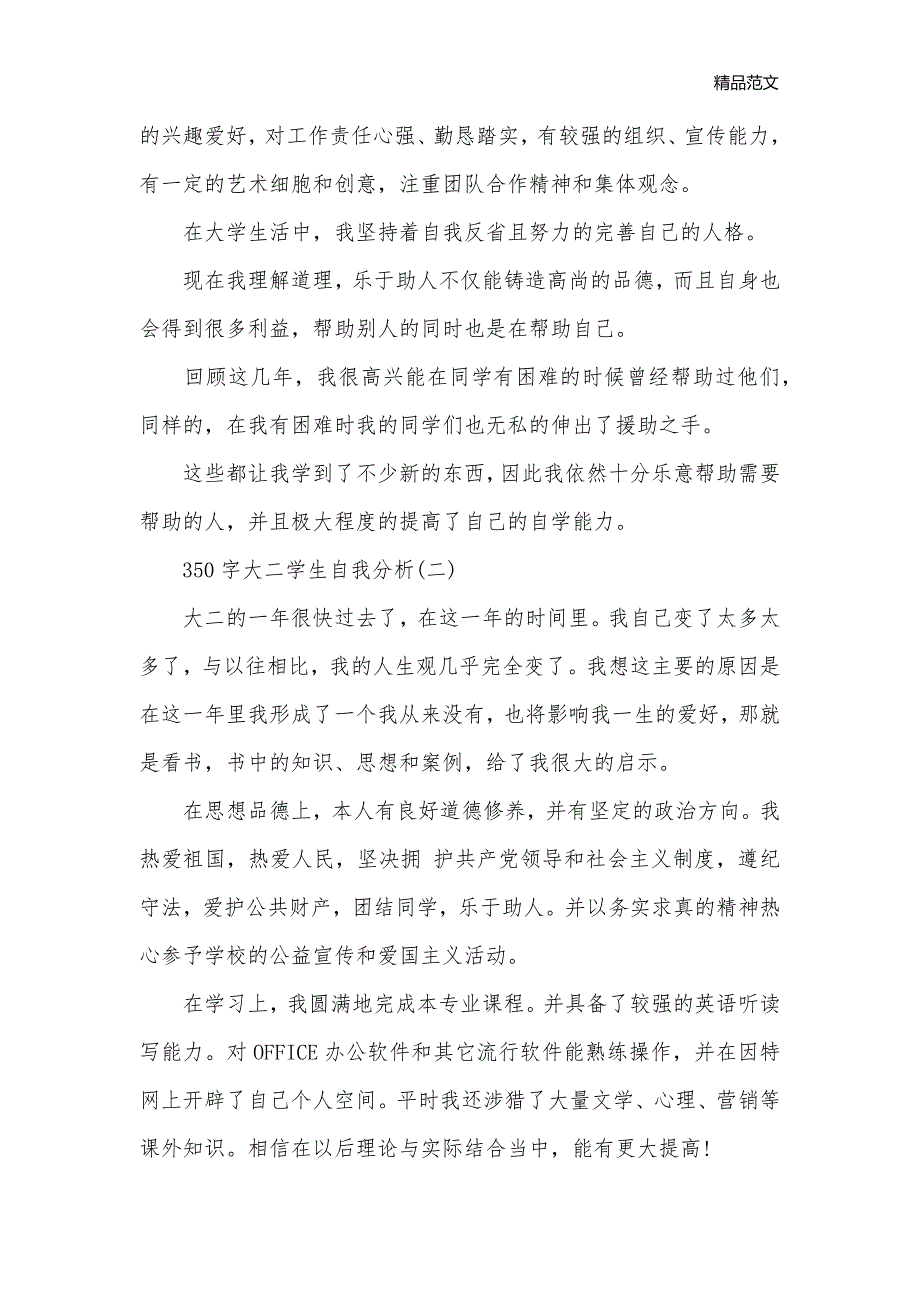 精品范文
的兴趣爱好，对工作责任心强、勤恳踏实，有较强的组织、宣传能力，
有一定的艺术细胞和创意，注重团队合作精神和集体观念。
在大学生活中，我坚持着自我反省且努力的完善自己的人格。
现在我理解道理，乐于助人不仅能铸造高尚的品德，而且自身也
会得到很多利益，帮助别人的同时也是在帮助自己。
回顾这几年，我很高兴能在同学有困难的时候曾经帮助过他们，
同样的，在我有困难时我的同学们也无私的伸出了援助之手。
这些都让我学到了不少新的东西，因此我依然十分乐意帮助需要
帮助的人，并且极大程度的提高了自己的自学能力。
350 字大二学生自我分析(二)
大二的一年很快过去了，在这一年的时间里。我自己变了太多太
多了，与以往相比，我的人生观几乎完全变了。我想这主要的原因是
在这一年里我形成了一个我从来没有，也将影响我一生的爱好，那就
是看书，书中的知识、思想和案例，给了我很大的启示。
在思想品德上，本人有良好道德修养，并有坚定的政治方向。我
热爱祖国，热爱人民，坚决拥 护共产党领导和社会主义制度，遵纪
守法，爱护公共财产，团结同学，乐于助人。并以务实求真的精神热
心参予学校的公益宣传和爱国主义活动。
在学习上，我圆满地完成本专业课程。并具备了较强的英语听读
写能力。对 OFFICE 办公软件和其它流行软件能熟练操作，并在因特
网上开辟了自己个人空间。平时我还涉猎了大量文学、心理、营销等
课外知识。相信在以后理论与实际结合当中，能有更大提高!